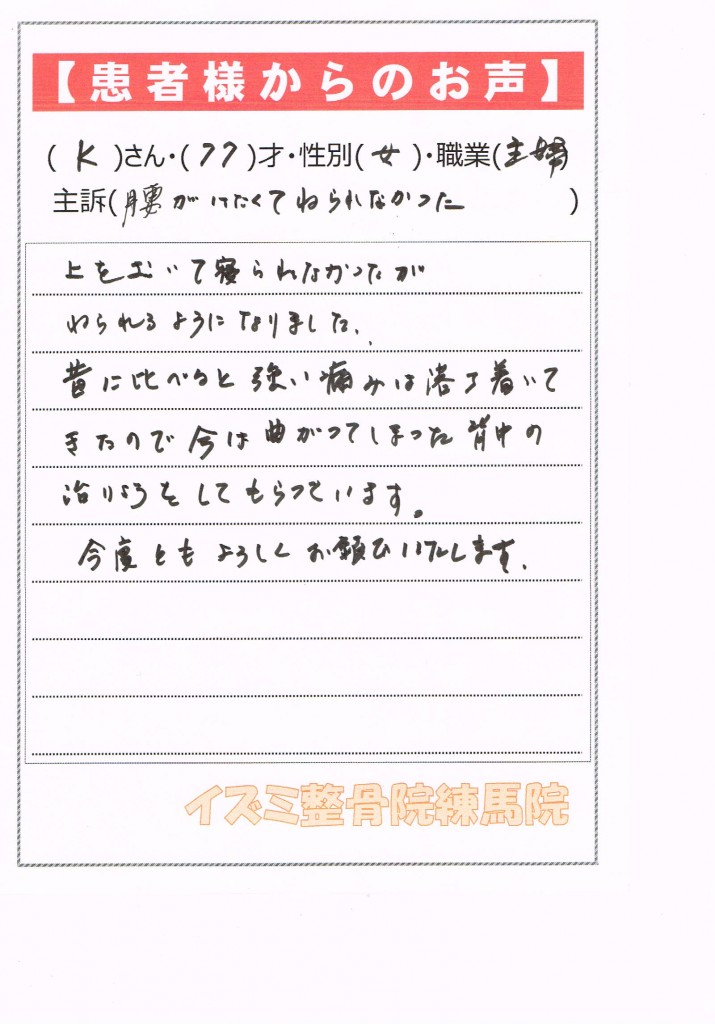 【患者様からのお声】
( K )さん・( 77 )才・性別( 女 )・職業( 主婦 )
主訴( 腰がいたくてねられなかった )
上をむいて寝られなかったが
ねられるようになりました。
昔に比べると強い痛みは落ち着いて
きたので今は曲がってしまった背中の
治りょうをしてもらっています。
今度ともよろしくお願いいたします。
イズミ整骨院練馬院